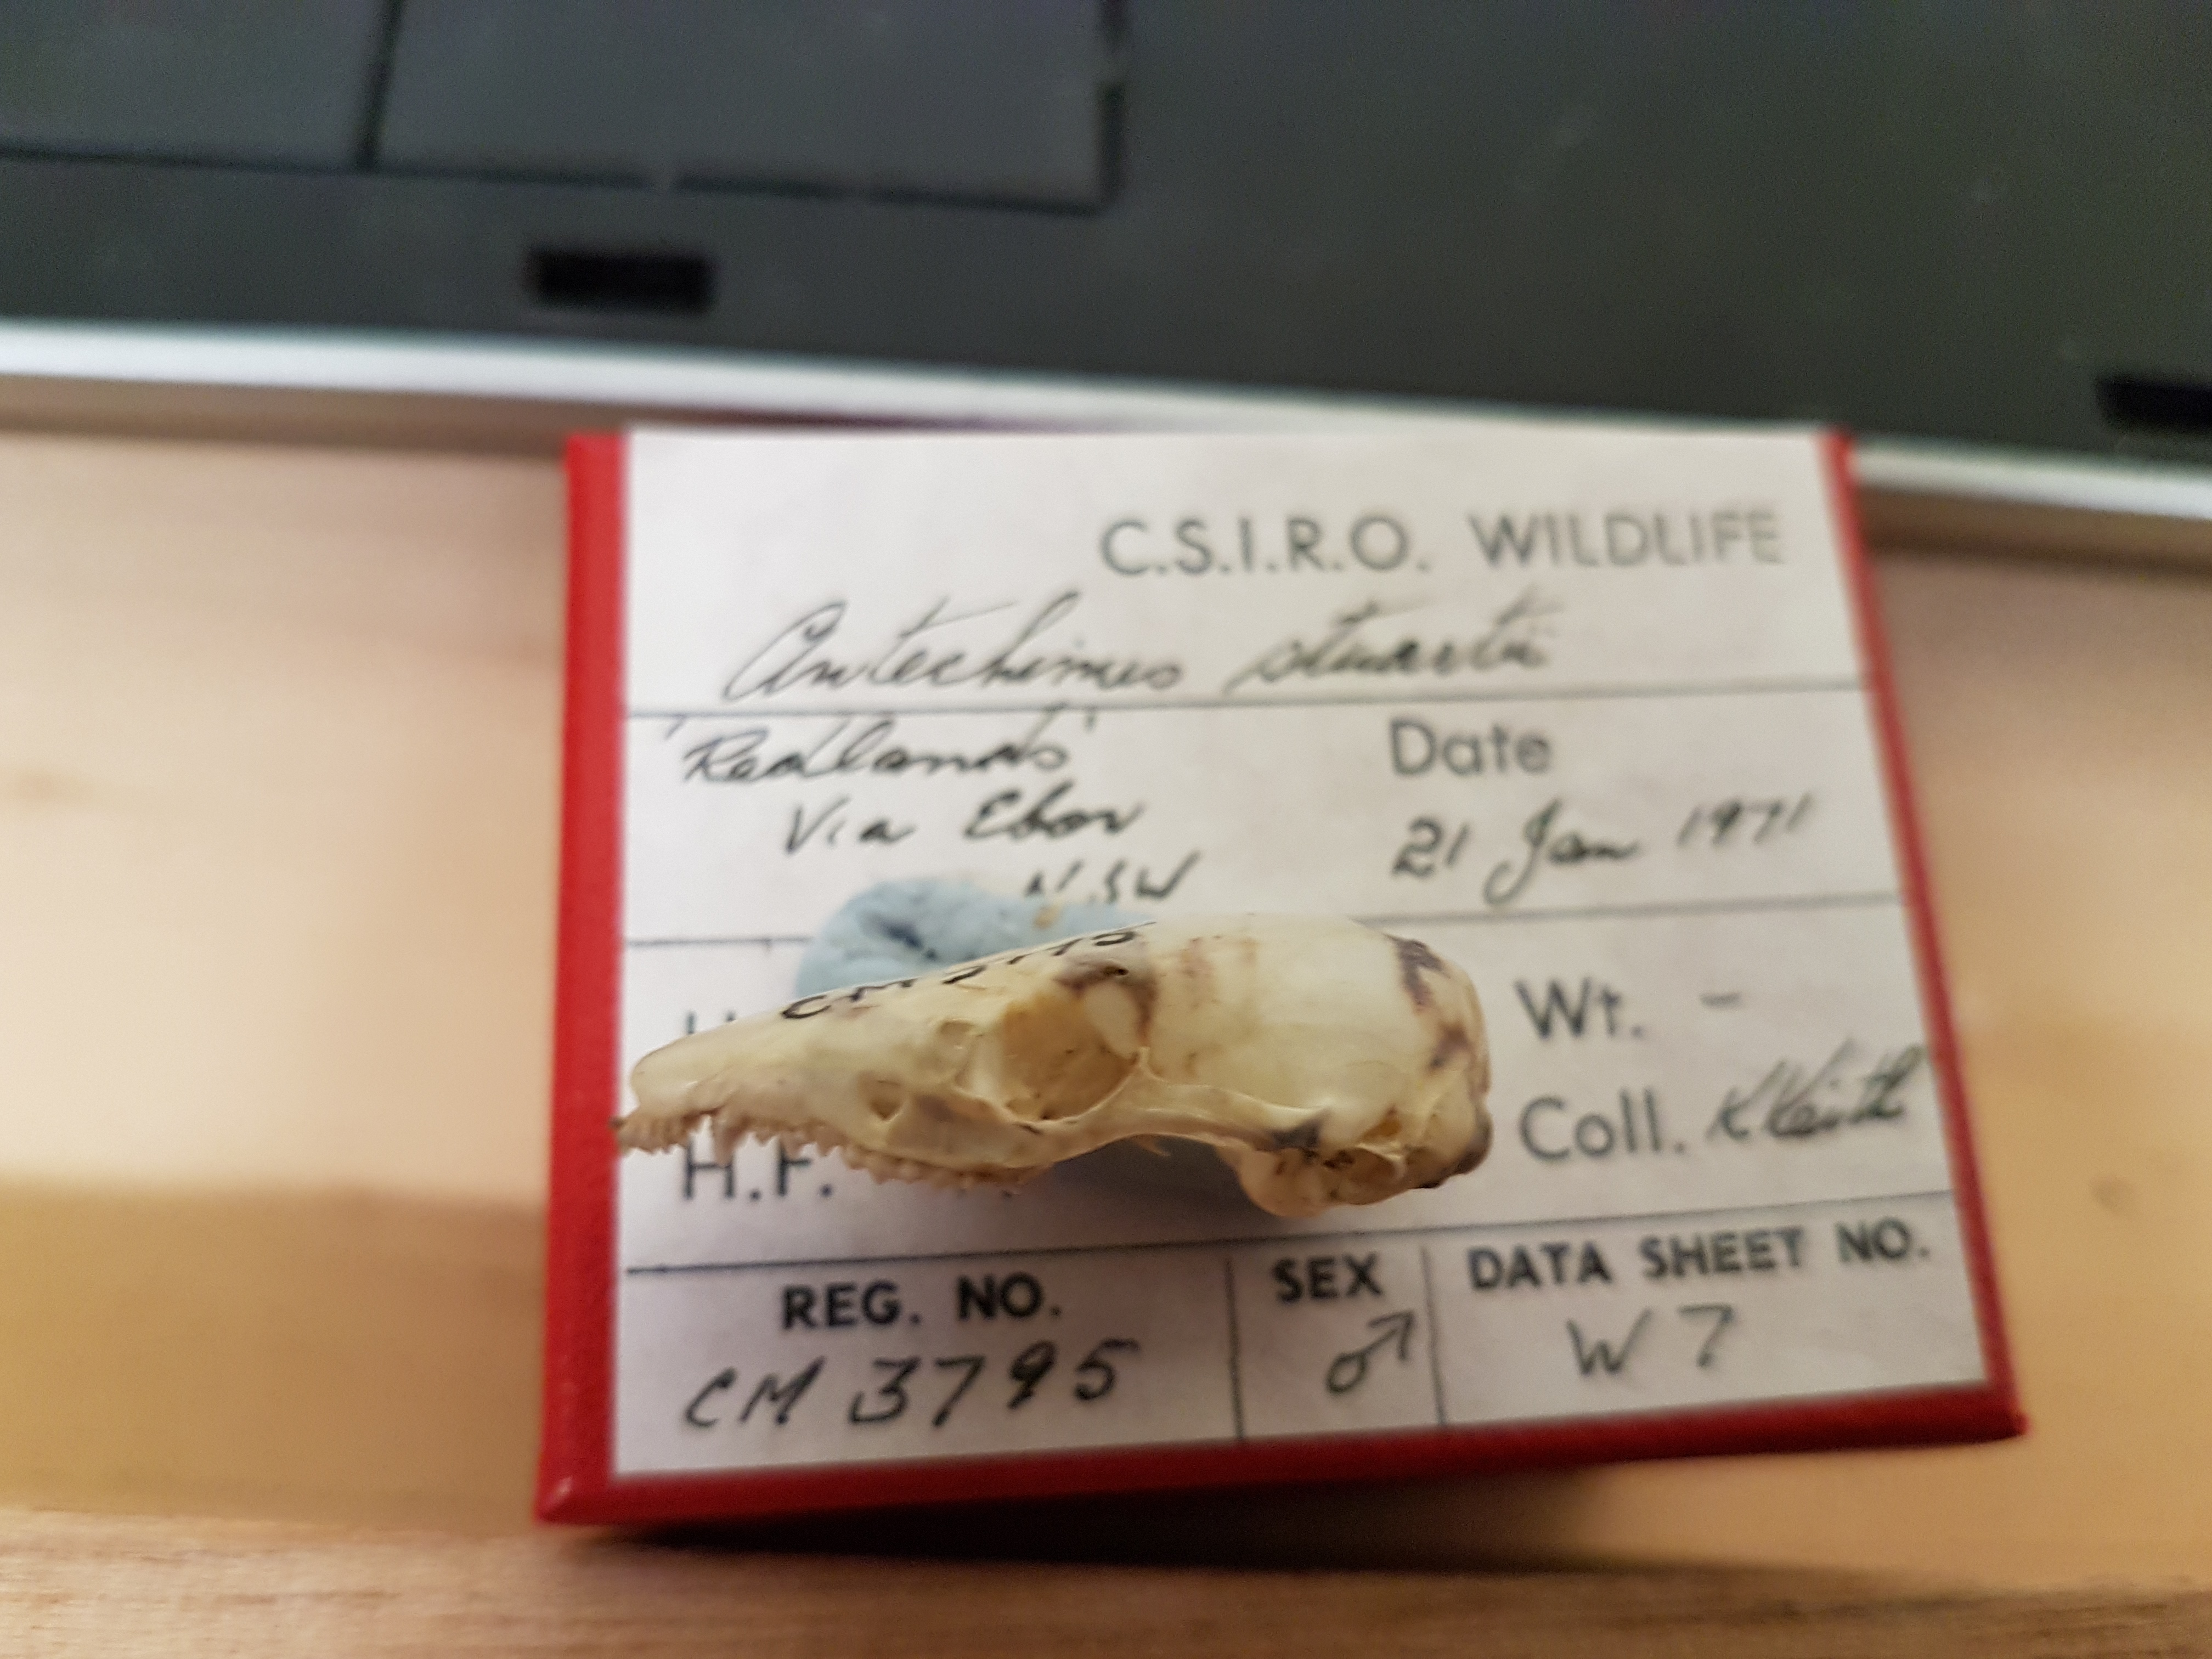 C.S.I.R.O. WILDLIFE
Antechinus stuartii
'Redlands'
Via Ebor
N.SW
Date
21 Jan 1971
Wt. -
Coll. K Keith
H.F.
REG. NO.
CM 3795
SEX
♂
DATA SHEET NO.
W 7